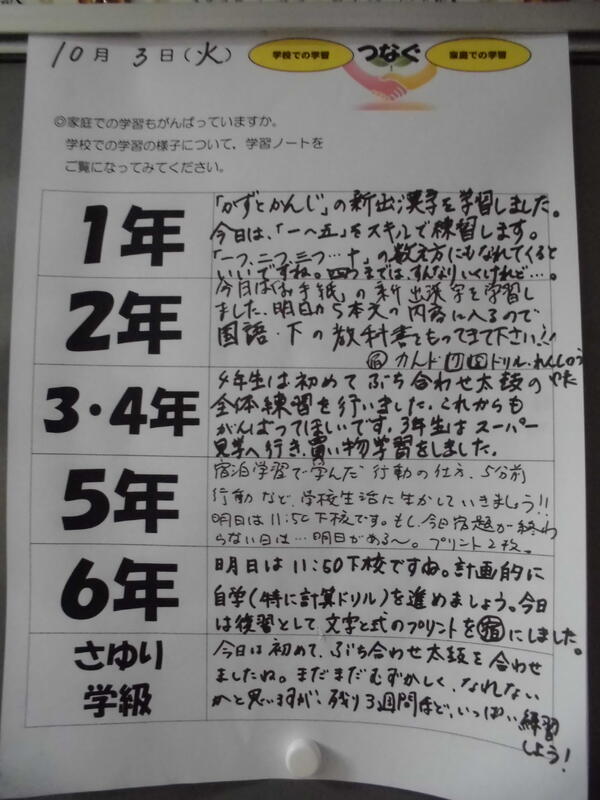 10月 3日(火)
学校での学習 つなぐ 家庭での学習
◎家庭での学習もがんばっていますか。
学校での学習の様子について、学習ノートを
ご覧になってみてください。
1年
「かずとかんじ」の新出漢字を学習しました。
今日は、「一〜五」をスキルで練習します。
「一つ、二つ、三つ…十」の数え方にもなれてくると
いいですね。四つまでは、すんなりいくけれど…。
2年
今日は「お手紙」の新出漢字を学習し
ました。明日から本文の内容に入るので
国語・下の教科書をもってきて下さい!!
宿 カンド ドリル・れんしゅう
3・4年
4年生は初めてぶち合わせ太鼓の
全体練習を行いました。これからも
がんばってほしいです。3年生はスーパー
見学へ行き、買い物学習をしました。
5年
宿泊学習で学んだ行動の仕方、5分前
行動など、学校生活に生かしていきましょう!!
明日は11:50下校です。もし今日宿題が終わ
らない日は…明日がある〜。プリント2枚。
6年
明日は11:50下校ですね。計画的に
自学(特に計算ドリル)を進めましょう。今日
は復習として文字と式のプリントを宿にしました。
さゆり
学級
今日は初めて、ぶち合わせ太鼓を合わせ
ましたね。まだまだむずかしく、なれない
かと思いますが、残り3週間ほど、いっぱい練習
しよう!